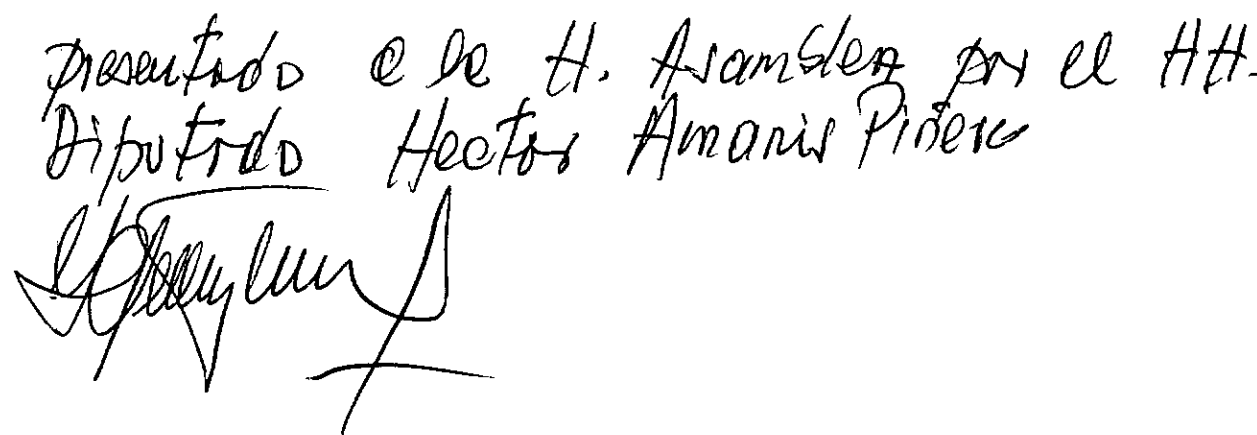 presentado a la H. Asamblea por el HH.
Diputado Hector Amaris Piñero